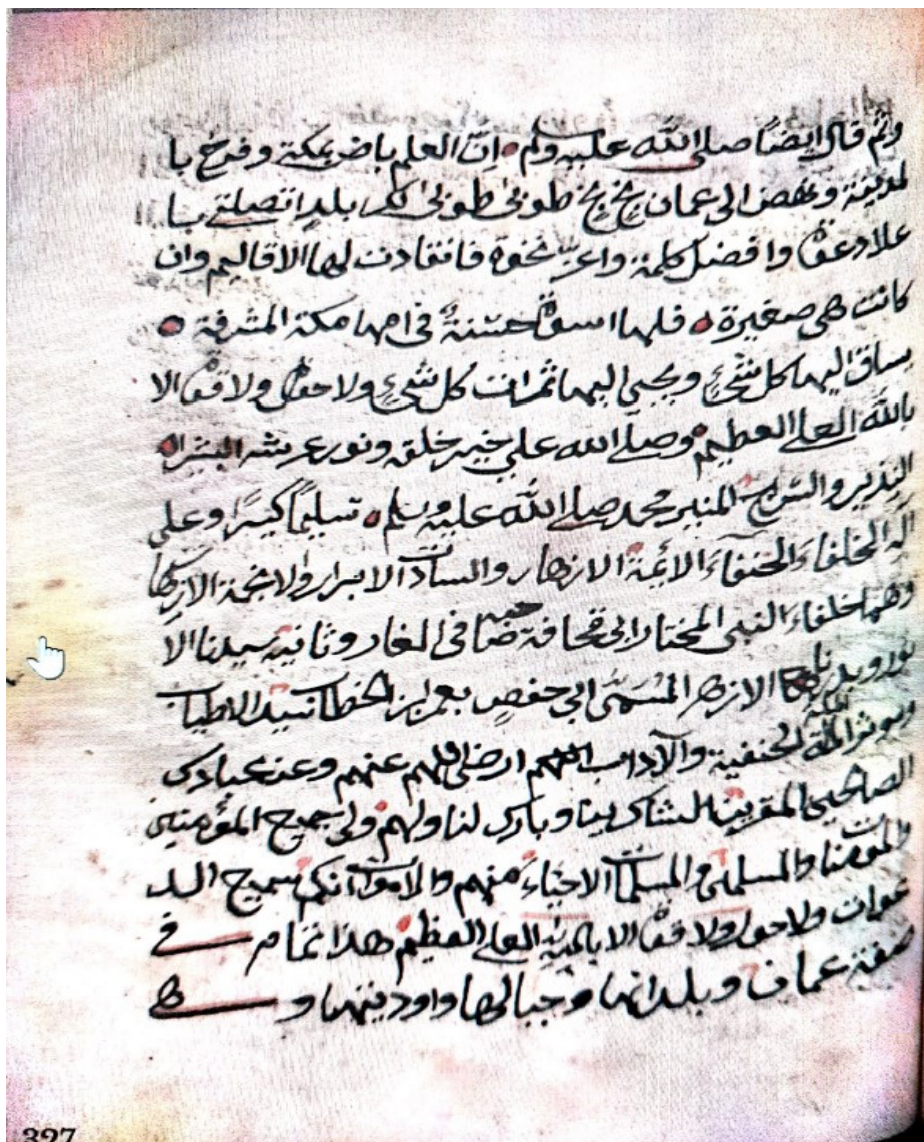 وثم قال ايضا صلى الله عليه وسلم ان العلم باض بمكة وفرخ با
لمدينة ونهض الى عمان بخ بخ طوبى طوبى لكم بلد اتصلت با
وافضل كلمة واعز نخوة فانقادت لها الاقاليم وان
كانت هي صغيرة فلها اسوة حسنة في امها مكة المشرفة
يساق اليها كل شيء ويجبى اليها ثمرات كل شيء ولا حول ولا قوة الا
بالله العلي العظيم وصلى الله على خير خلقه ونور عرشه البشير
النذير والسراج المنير محمد صلى الله عليه وسلم تسليما كبيرا وعلى
اله الخلفاء الحنفاء الائمة الازهار والسادات الابرار
وهما خلفاء النبي المختار ابي قحافة في الغار وثانيه سيدنا الا
الازهر المسمى ابي حفص بعمر ابن الخطاب سيد الاطياب
الحنفية والآداب اللهم ارضى اللهم عنهم وعن عبادك
الصالحين المقربين الشاكرينا وبارك لنا ولهم ولجميع المؤمنين
والمؤمنات والمسلمين والمسلمات الاحياء منهم والاموات انك سميع الد
عوات ولا حول ولا قوة الا بالله العلي العظيم هذا تمام في
صفة عمان وبلدانها وجبالها واوديتها و
327